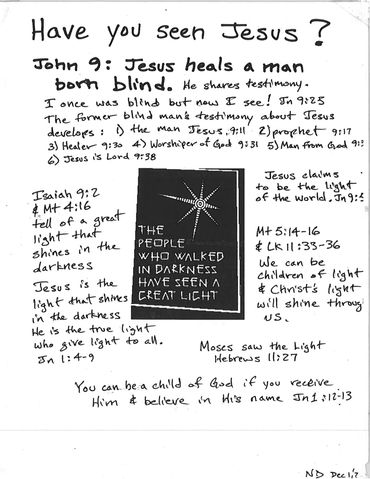 Have you seen Jesus?
John 9: Jesus heals a man
born blind. He shares testimony.
I once was blind but now I see! Jn 9:25
The former blind man's testimony about Jesus
develops: 1) the man Jesus. 9:11 2) prophet 9:17
3) Healer 9:30 4) Worshiper of God 9:31 5) Man from God 9:3
6) Jesus is Lord 9:38
Isaiah 9:2
& Mt 4:16
tell of a great
light that
shines in the
darkness
Jesus is the
light that shines
in the darkness
He is the true light
who give light to all.
Jn 1:4-9
THE
PEOPLE
WHO WALKED
IN DARKNESS
HAVE SEEN A
GREAT LIGHT
Jesus claims
to be the light
of the world. Jn 9:5
Mt 5:14-16
& LK 11:33-36
We can be
children of light
& Christ's light
will shine throug
us.
Moses saw the Light
Hebrews 11:27
You can be a child of God if you receive
Him & believe in His name Jn 1:12-13
ND Dec